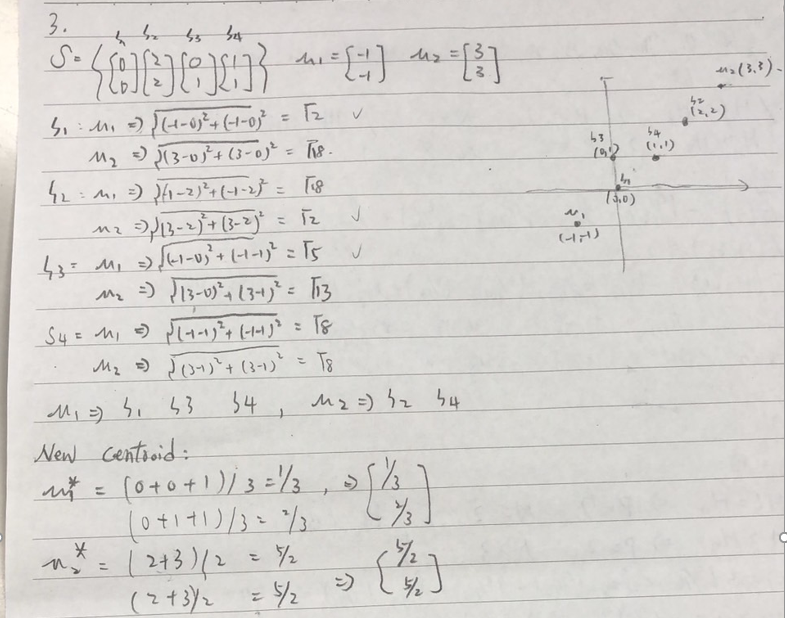 3.
s1 s2 s3 s4
S = { [0 0] [2 2] [0 1] [1 1] } μ1 = [-1 -1] μ2 = [3 3]
s1 : μ1 => √(-1-0)²+(-1-0)² = √2 ✓
μ2 => √(3-0)²+(3-0)² = √18.
s2 : μ1 => √(-1-2)²+(-1-2)² = √18
μ2 => √(3-2)²+(3-2)² = √2 ✓
s3 = μ1 => √(-1-0)²+(-1-1)² = √5 ✓
μ2 => √(3-0)²+(3-1)² = √13
s4 = μ1 => √(-1-1)²+(-1-1)² = √8
μ2 => √(3-1)²+(3-1)² = √8
μ1 => s1 s3 s4 , μ2 => s2 s4
New Centroid:
μ1* = (0+0+1)/3 = 1/3 , => [1/3 2/3]
(0+1+1)/3 = 2/3
μ2* = (2+3)/2 = 5/2 => [5/2 5/2]
(2+3)/2 = 5/2
μ2(3,3)
s2
(2,2)
s3
(0,1)
s4
(1,1)
s1
(0,0)
μ1
(-1,-1)